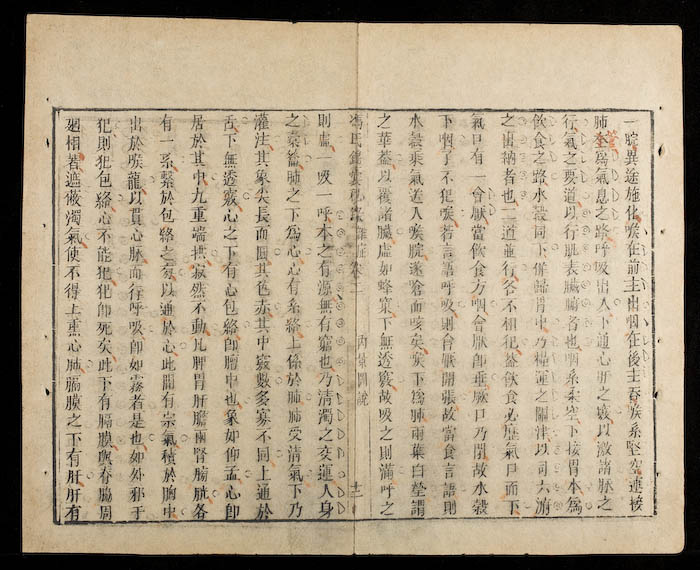 一腕異途施化喉在前主出咽在後主吞喉系堅空連接
肺本爲氣息之路呼吸出入下通心肝之竅以激諸脉之
行氣之要道以行肌表臟腑者也咽系柔空下接胃本爲
飲食之路水穀同下併歸胃中乃糧運之關津以司六腑
之出納者也二道並行各不相犯葢飲食必歷氣口而下
氣口有一會厭當飲食方咽會厭即垂厥口乃閉故水穀
下咽了不犯喉若言語呼吸則會厭開張故當食言語則
水穀乘氣送入喉脘遂嗆而咳矣矣下爲肺兩葉白瑩謂
之華葢以覆諸臟虛如蜂窠下無透竅故吸之則滿呼之
馮氏錦囊秘錄雜症卷二 內景圖說 十二
則虛一吸一呼本之有源無有窮也乃清濁之交運人身
之橐籥肺之下爲心心有系絡上係於肺肺受清氣下乃
灌注其象尖長而圓其色赤其中竅數多寡不同上通於
舌下無透竅心之下有心包絡即膻中也象如仰盂心即
居於其中九重端拱寂然不動凡脾胃肝膽兩腎膀胱各
有一系繫於包絡之旁以通於心此間有宗氣積於胸中
出於喉嚨以貫心脉而行呼吸即如霧者是也如外邪干
犯則犯包絡心不能犯犯即死矣此下有膈膜與脊脇周
廻相着遮蔽濁氣使不得上熏心肺膈膜之下有肝肝有